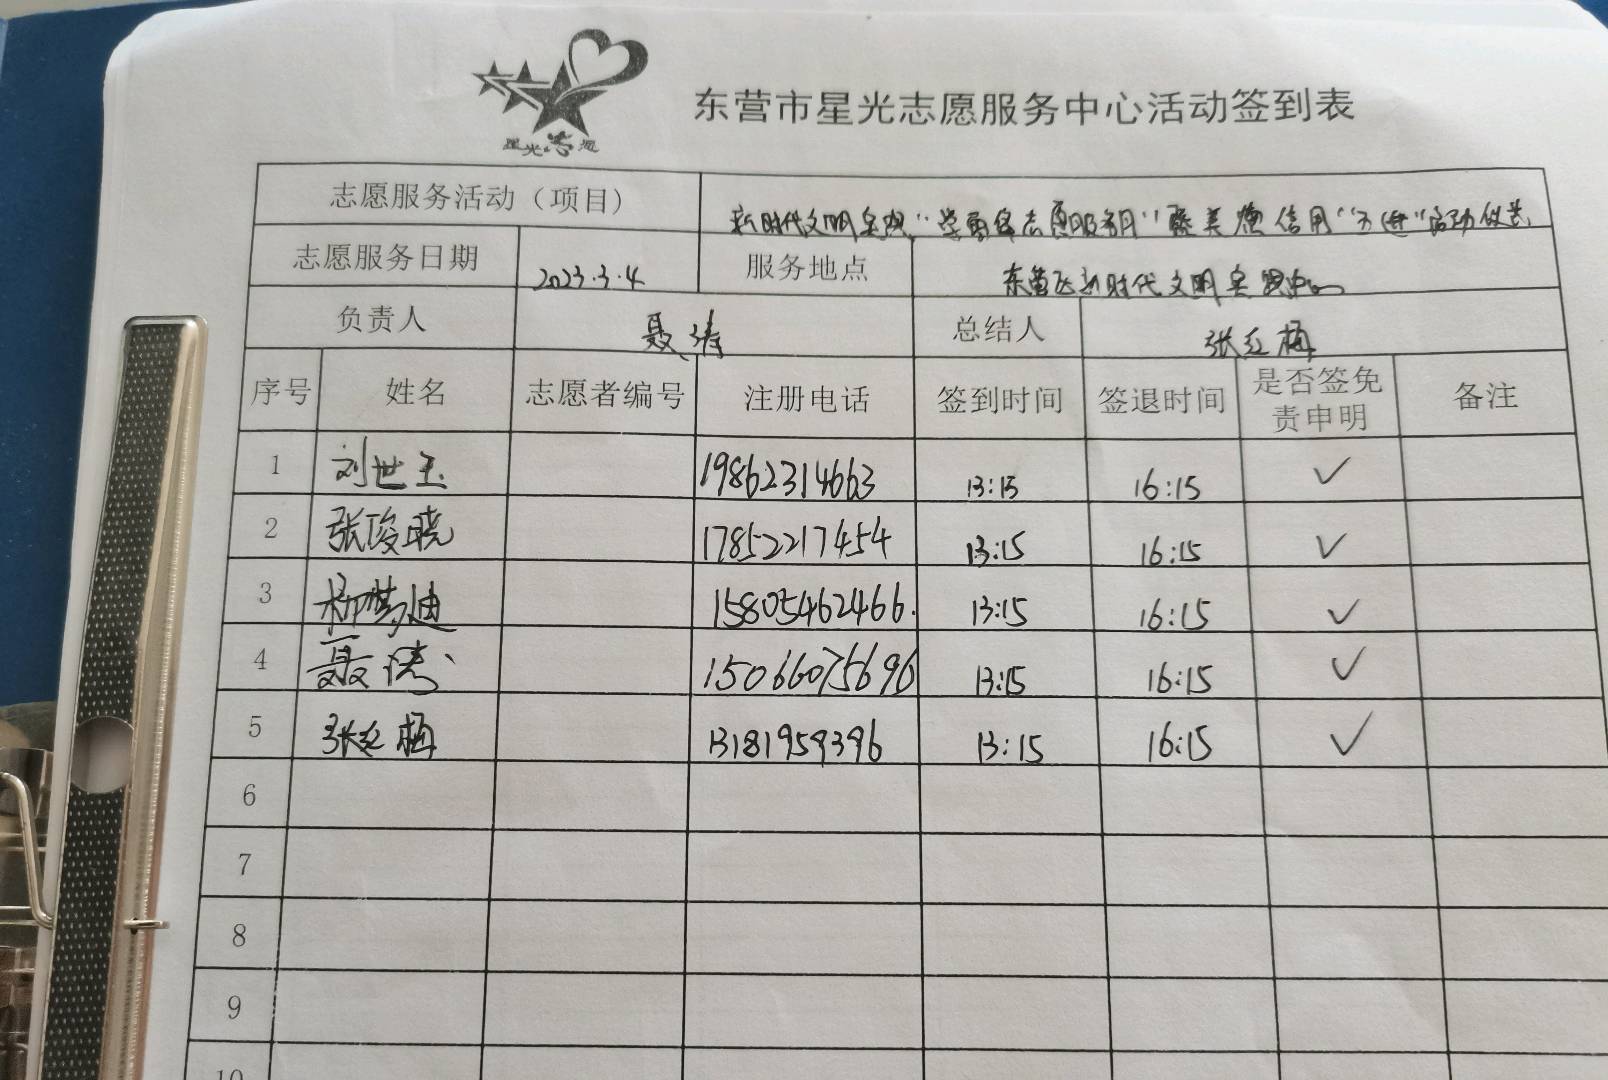 星光志愿
东营市星光志愿服务中心活动签到表
志愿服务活动（项目） 新时代文明实践"学雷锋志愿服务月""聚美德信用""五进"启动仪式
志愿服务日期 2023.3.4 服务地点 东营区新时代文明实践中心
负责人 聂涛 总结人 张红梅
序号 姓名 志愿者编号 注册电话 签到时间 签退时间 是否签免责申明 备注
1 刘世玉 19862314663 13:15 16:15 ✓
2 张俊晓 17852217454 13:15 16:15 ✓
3 柳梦迪 15805462466. 13:15 16:15 ✓
4 聂涛 15066075696 13:15 16:15 ✓
5 张红梅 13181959396 13:15 16:15 ✓
6
7
8
9
10